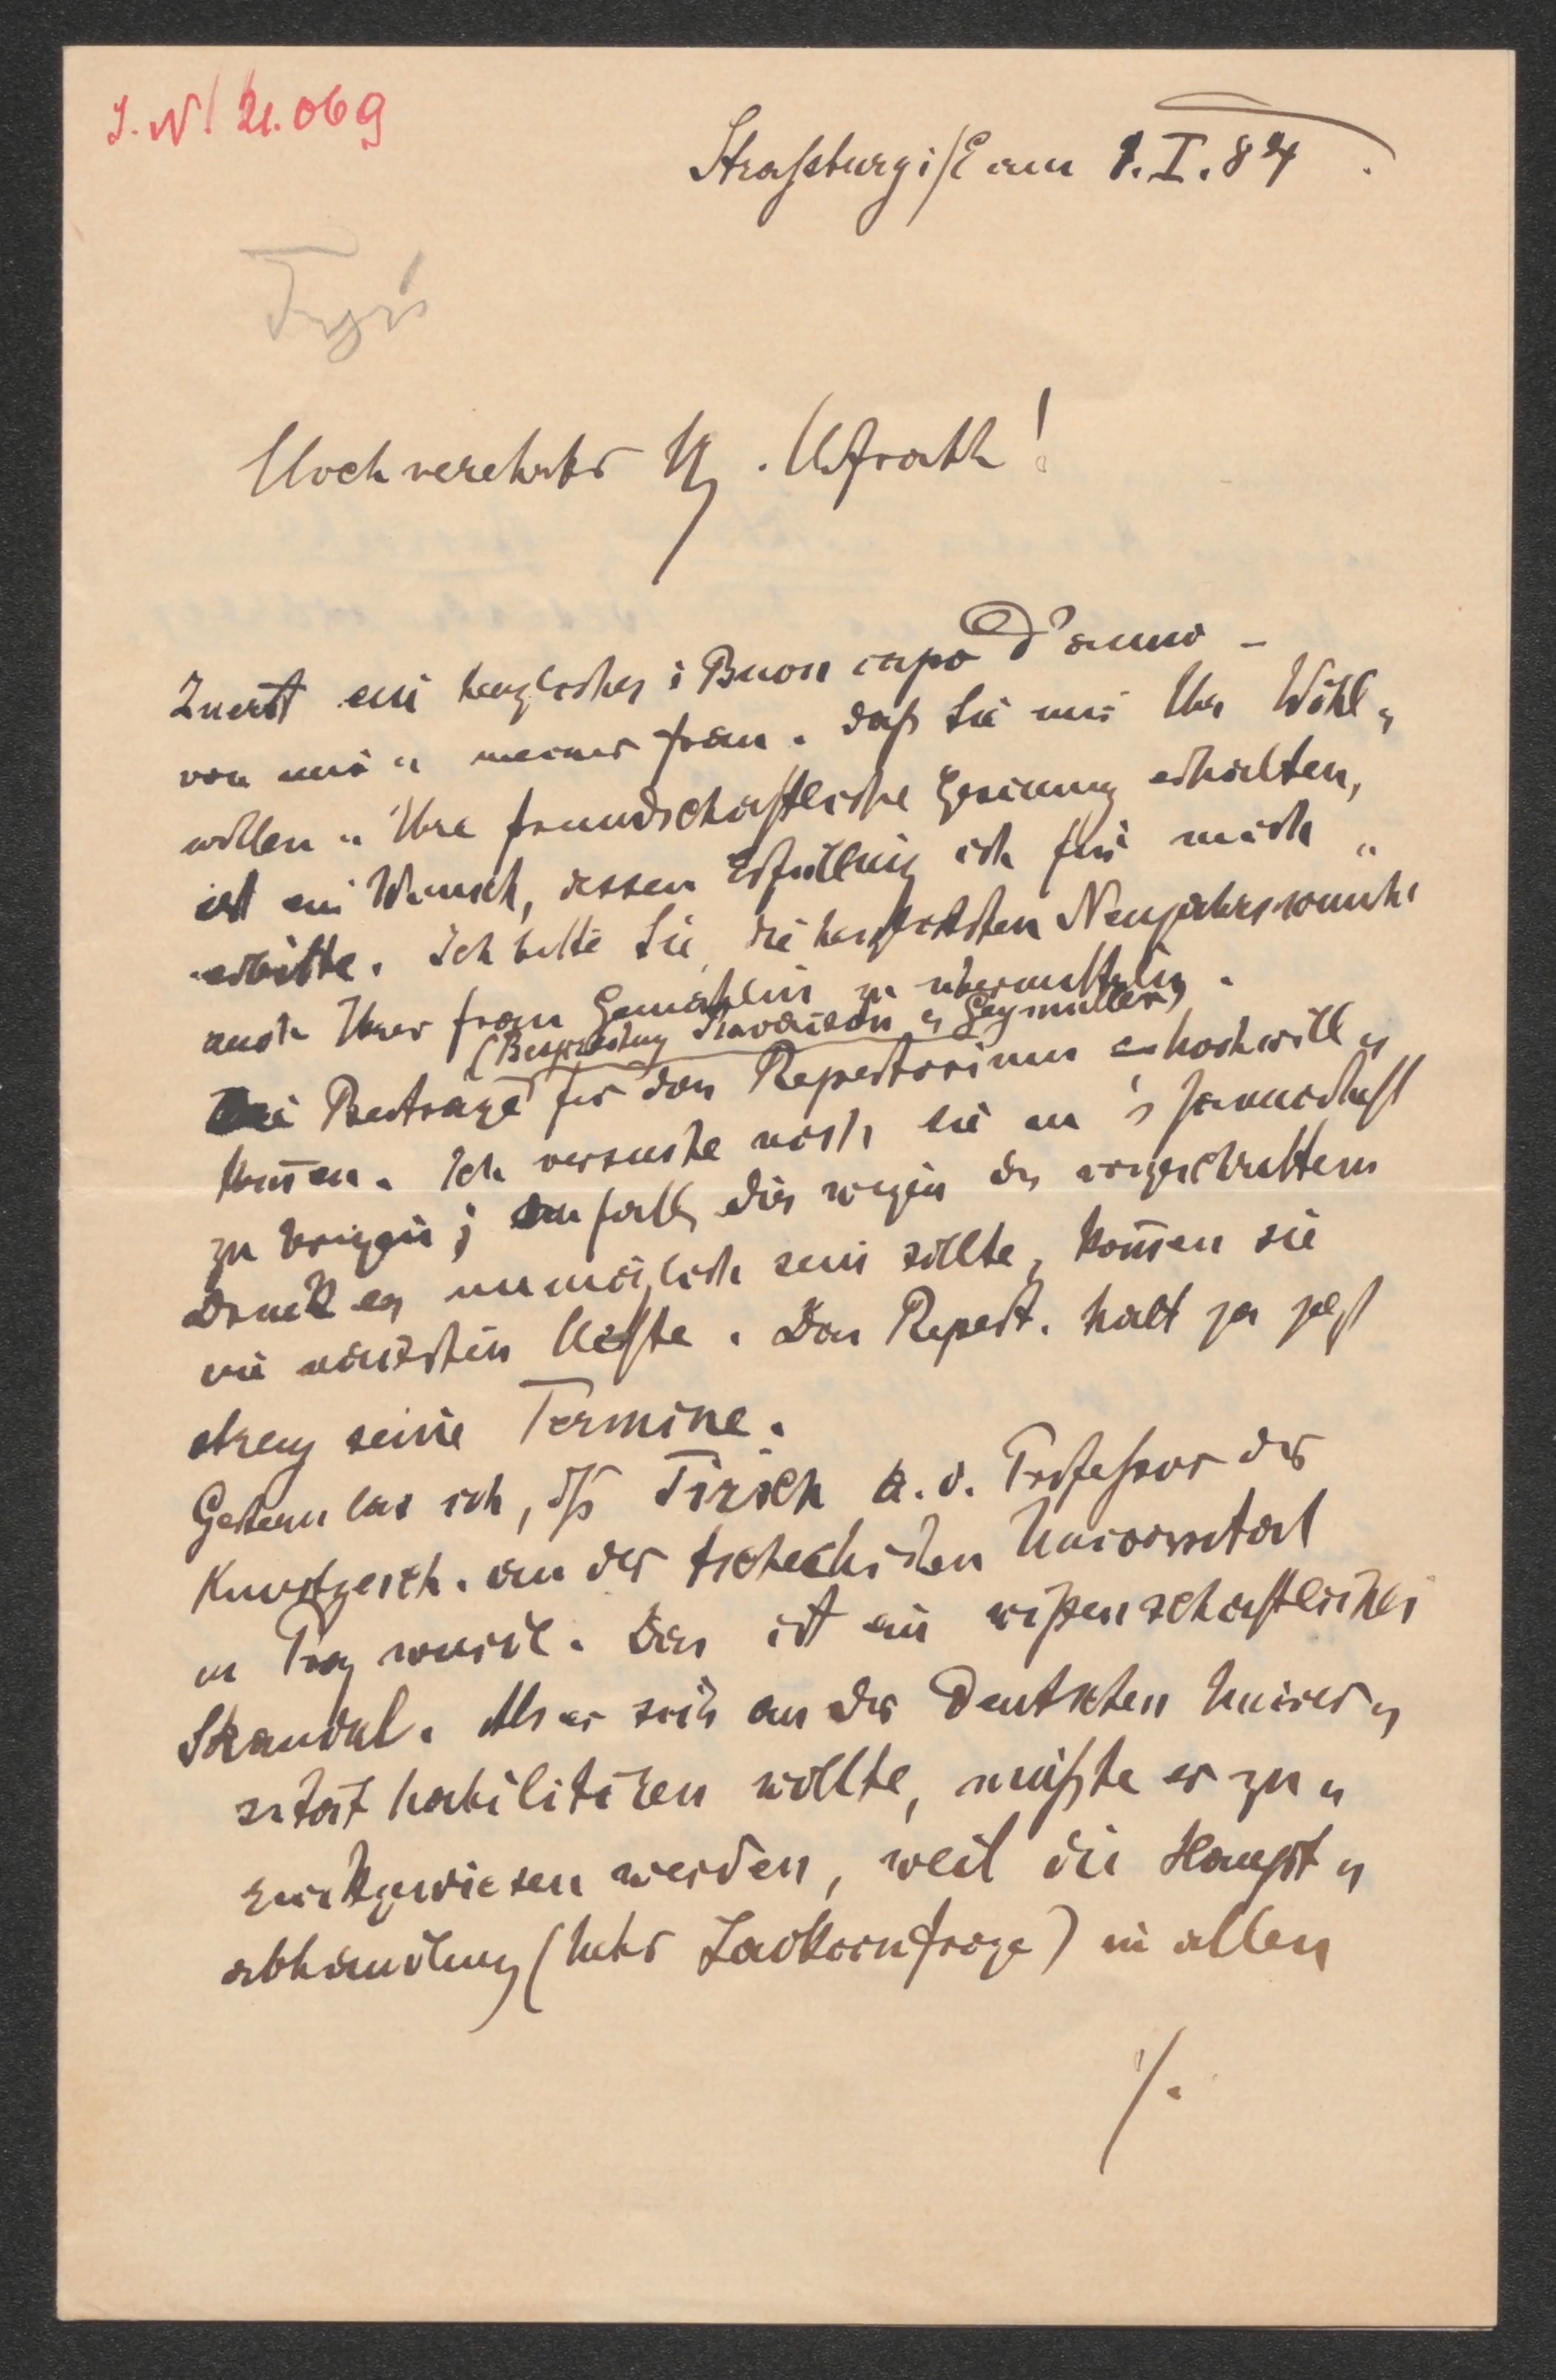 I.N. 21.069
Straßburg i/E am 1.I.84.
Hochverehrter H. Hofrath!
Zuerst ein herzliches: Buon capo d'anno –
von mir u meiner Frau. Daß Sie mir Ihr Wohl„
wollen u Ihre freundschaftliche Gesinnung erhalten,
ist ein Wunsch, dessen Erfüllung ich für mich
erbitte. Ich bitte Sie, die herzlichsten Neujahrswünsche
auch Ihrer Frau Gemahlin zu übermitteln.
(Besprechung Ravaisson u Geymüller)
Die Beiträge für das Repertorium hochwill„
kom̄en. Ich versuche noch sie in's Januarheft
zu bringen; im falle dies wegen des vorgeschrittenen
Druck es unmöglich sein sollte, kom̄en sie
im nächsten Hefte. Das Repert. hält ja jetzt
streng seine Termine.
Gestern las ich, dß Tirsch a.o. Professor der
Kunstgesch. an der tschechischen Universität
in Prag wurde. Das ist ein wißenschaftlicher
Skandal. Als er sich an der Deutschen Univer„
sität habilitiren wollte, mußte er zu„
rückgewiesen werden, weil die Haupt„
abhandlung (Laokoonfrage) in allen
./.